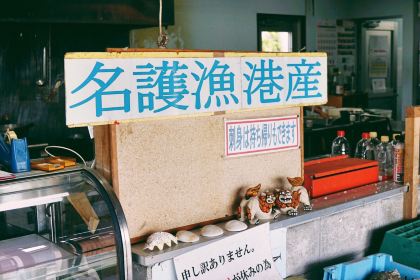 名護漁港産
刺身は持ち帰りもできます
申し訳ありません。
が休みの為